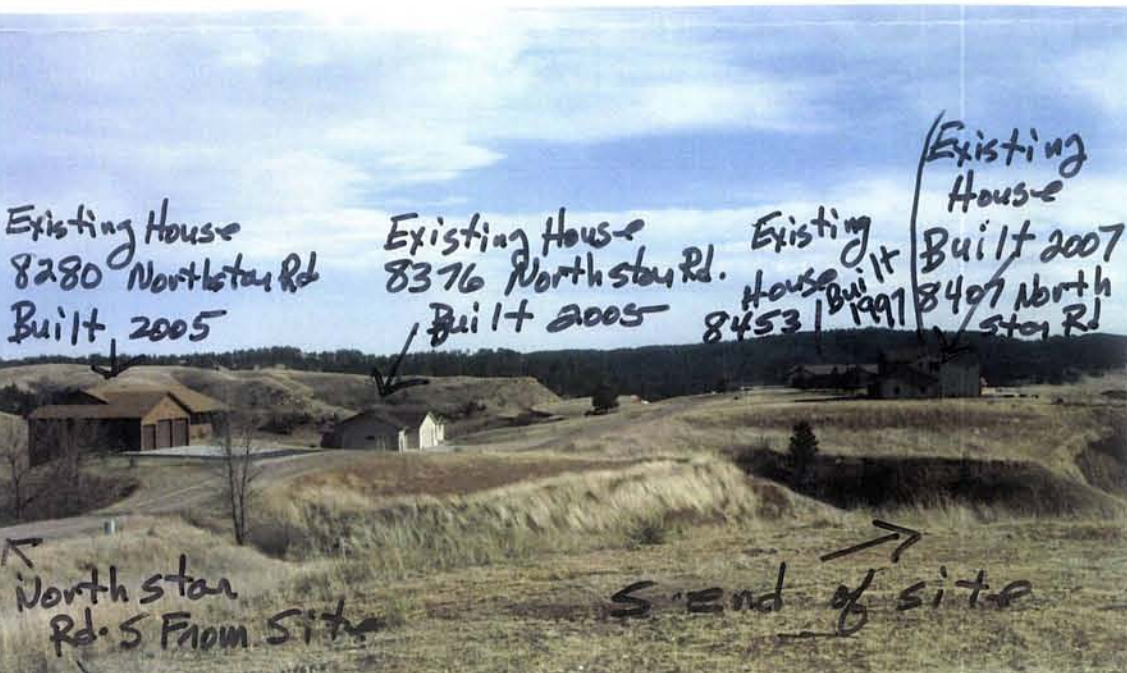 Existing House
8280 Northstar Rd
Built 2005
Existing House
8376 Northstar Rd.
Built 2005
Existing
House
8453
Built
1997
Existing
House
Built 2007
8407 North
star Rd
North star
Rd. S From Site
S end of site